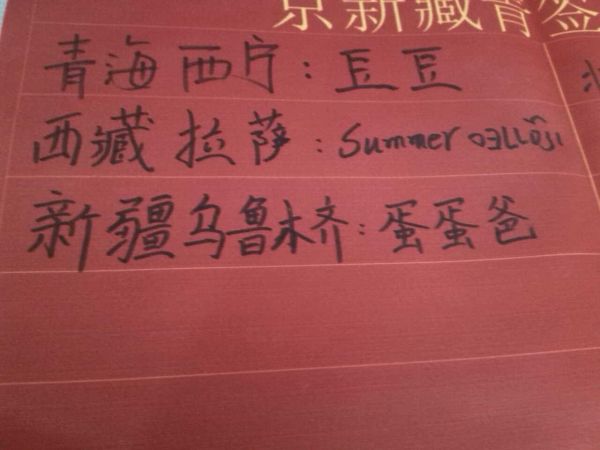 京新藏青签
青海西宁:豆豆
西藏拉萨:Summer
新疆乌鲁木齐:蛋蛋爸